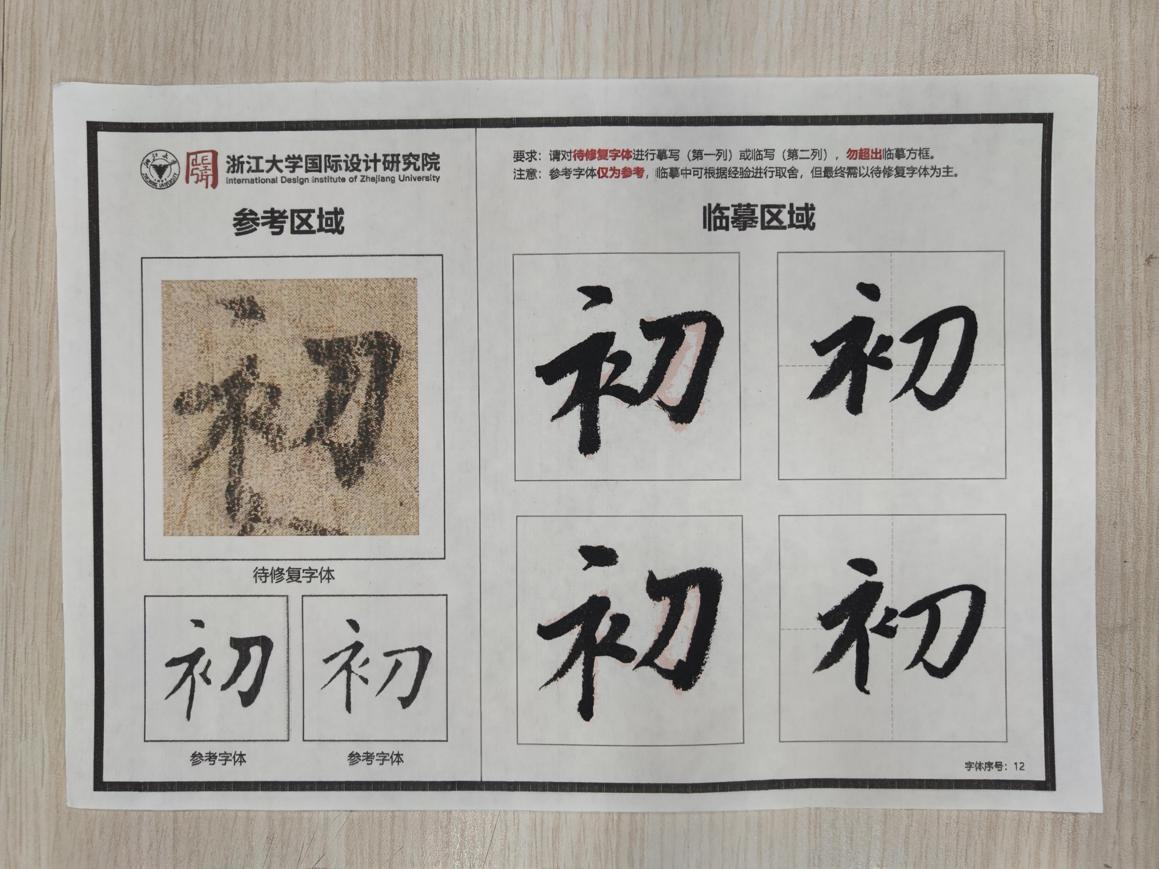 浙江大学国际设计研究院
International Design Institute of Zhejiang University
参考区域
初
待修复字体
初 初
参考字体 参考字体
要求：请对待修复字体进行摹写（第一列）或临写（第二列），勿超出临摹方框。
注意：参考字体仅为参考，临摹中可根据经验进行取舍，但最终需以待修复字体为主。
临摹区域
初 初
初 初
字体序号：12